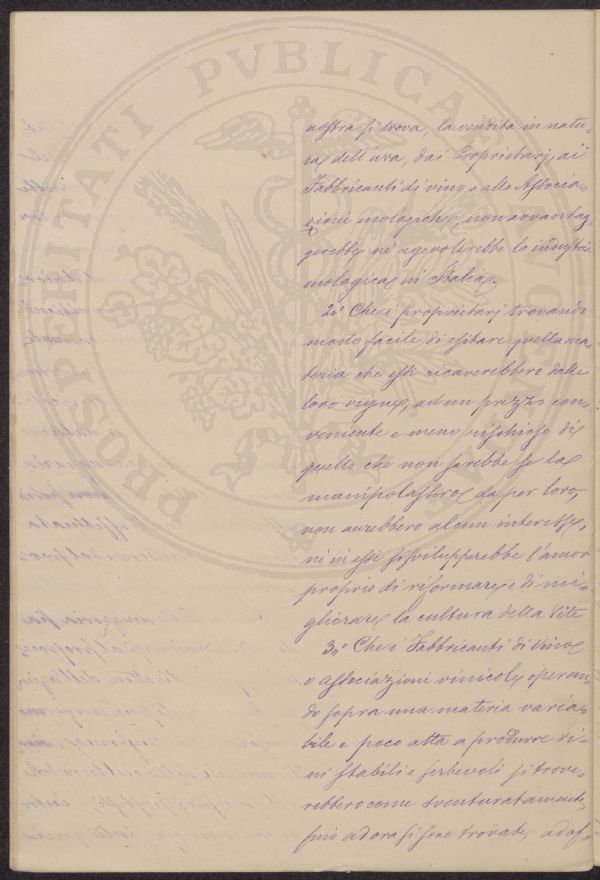 PROSPERITATI PVBLICAE AVGENDAE
nostra si trova, la vendita in natu-
ra dell'uva, dai Proprietarj, ai
Fabbricanti di vino e alle Associa-
zioni enologiche, non avvantag-
gerebbe nè agevolerebbe la industria
enologica in Italia.
2.° Che i proprietarj trovando
modo facile di esitare quella ma-
teria che essi ricaverebbero dalle
loro vigne, ad un prezzo con-
veniente e meno rischioso di
quello che non sarebbe se la
manipolassero da per loro,
non avrebbero alcun interesse,
nè in essi si svilupperebbe l'amor
proprio di riformare e di mi-
gliorare la cultura della Vite
3.° Che i Fabbricanti di Vino
o Associazioni vinicole operan-
do sopra una materia varia-
bile e poco atta a produrre vi-
ni stabili e serbevoli si trove-
rebbero come sventuratamente,
fino ad ora si sono trovate, ad of-